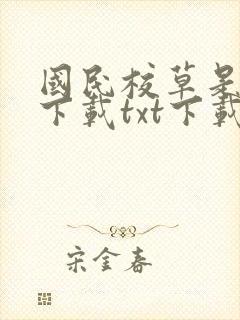 國民校草是
下載txt下載
宋金春